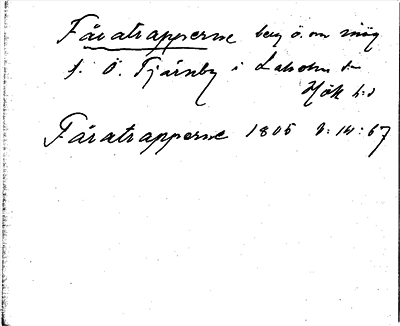 Fåratrapperne beg ö. om mög
f. Ö. Tjärnby i Laholm ln
Hök hd
Fåratrapperne 1805 2:14:67